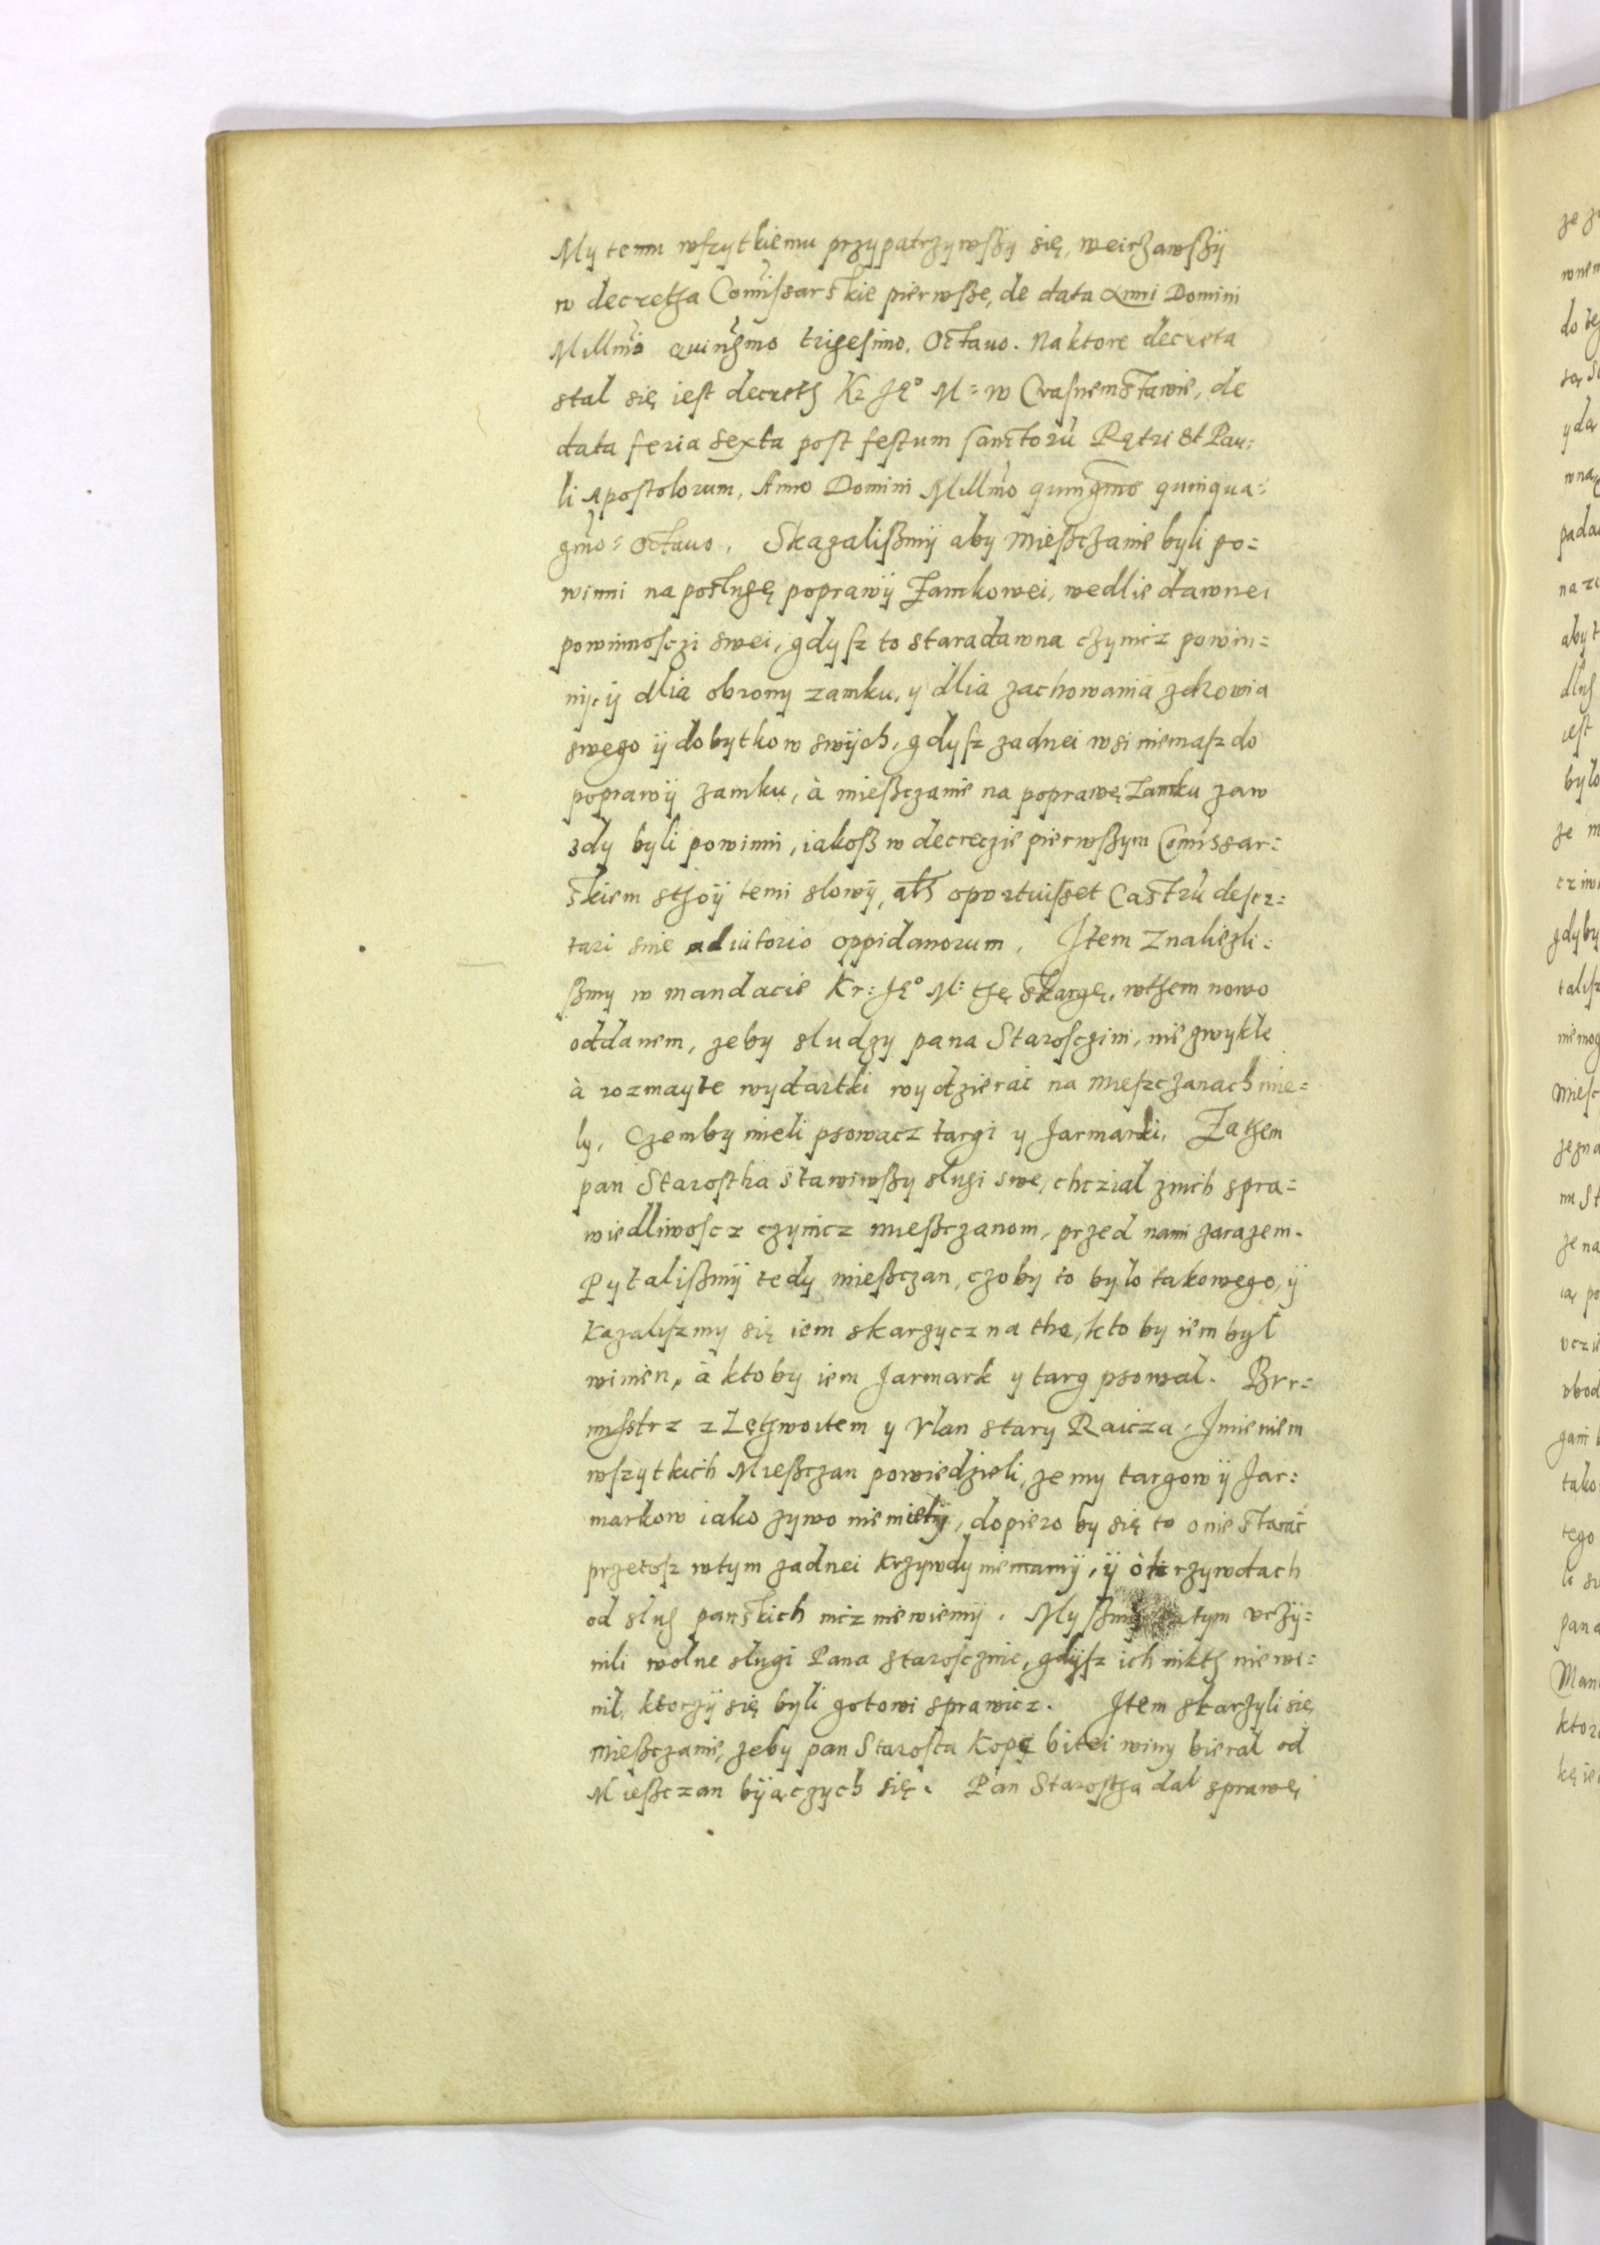 My temu wszytkiemu przypatrzywßy się, weirzawßÿ
w decretha Comissarskie pierwsße, de data Anni Domini
Millmo quingmo trigesimo, Octauo. Na ktore decreta
stal się iest decreth Kr Ję° M: w Crasnemstawie, de
data feria sexta post festum sanctorũ Pętri et Pau:
li Apostolorum, Anno Domini Millmo quingmo quinqua:
gmo: octauo. Skazalißmÿ aby mießczanie byli po=
winni na posługę poprawÿ Zamkowei, wedlie dawnei
powinnosczi swei, gdysz to staradawna czynicz powin=
ni, ÿ dlia obrony zamku, y dlia zachowania zdrowia
swego ÿ dobytkow swÿch, gdysz zadnei wsi niemasz do
poprawÿ zamku, à mießczanie na poprawę Zamku zaw
zdy byli powinni, iakoß w decreczie pierwßym Comissar:
skiem sthoÿ temi slowÿ, als oportuisset Castrũ deser:
tari sine adiutorio oppidanorum. Item Znaliezli:
ßmy w mandacie Kr: Ję° M: thę skargę, wthem nowo
oddanem, zeby sludzy pana Starosczini, niezwykłe
à rozmayte wydartki wydzierać na mieszczanach mie=
ly, Czemby mieli psowacz targi y Jarmarki, Zathem
pan Starostha stawiwßy sługi swe, chczial znich spra=
wiedliwoscz czynicz mießczanom, przed nami zarazem.
Pytalißmÿ tedy mießczan, czoby to bylo takowego, ÿ
kazaliszmy się iem skarzycz na tho, kto by iem był
winien, à kto by iem Jarmark y targ psowal. Bur=
mistrz z Lęthwoitem y Vlan stary Raicza, Imieniem
wszytkich Mießczan powiedzieli, ze my targow ÿ Jar=
markow iako zywo nie mielÿ, dopiero by się to o nie starać
przetosz wtym zadnei krzywdy niemamÿ, ÿ o krzywdach
od slug panskich nicz niewiemÿ. My ßmÿ tym vczÿ=
nili wolne sługi Pana starosczine, gdÿsz ich nikth nie wi=
nil, ktorzÿ się byli gotowi sprawicz. Item skarzyli się
mießczanie, zeby pan Starosta kopę bitei winy bieral od
Mießczan bÿączych się. Pan Starostha dal sprawę